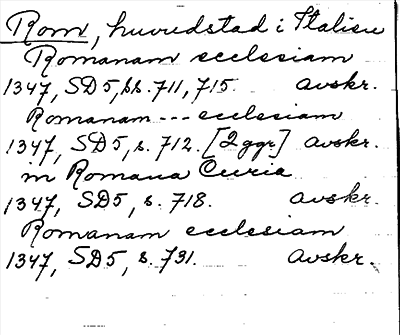 Rom, huvudstad i Italien
Romanam ecclesiam
1347, SD5, ss. 711, 715. avskr.
Romanam --- ecclesiam
1347, SD5, s. 712. [2 ggr.] avskr.
in Romana Curia
1347, SD5, s. 718. avskr.
Romanam ecclesiam
1347, SD5, s. 731. avskr.